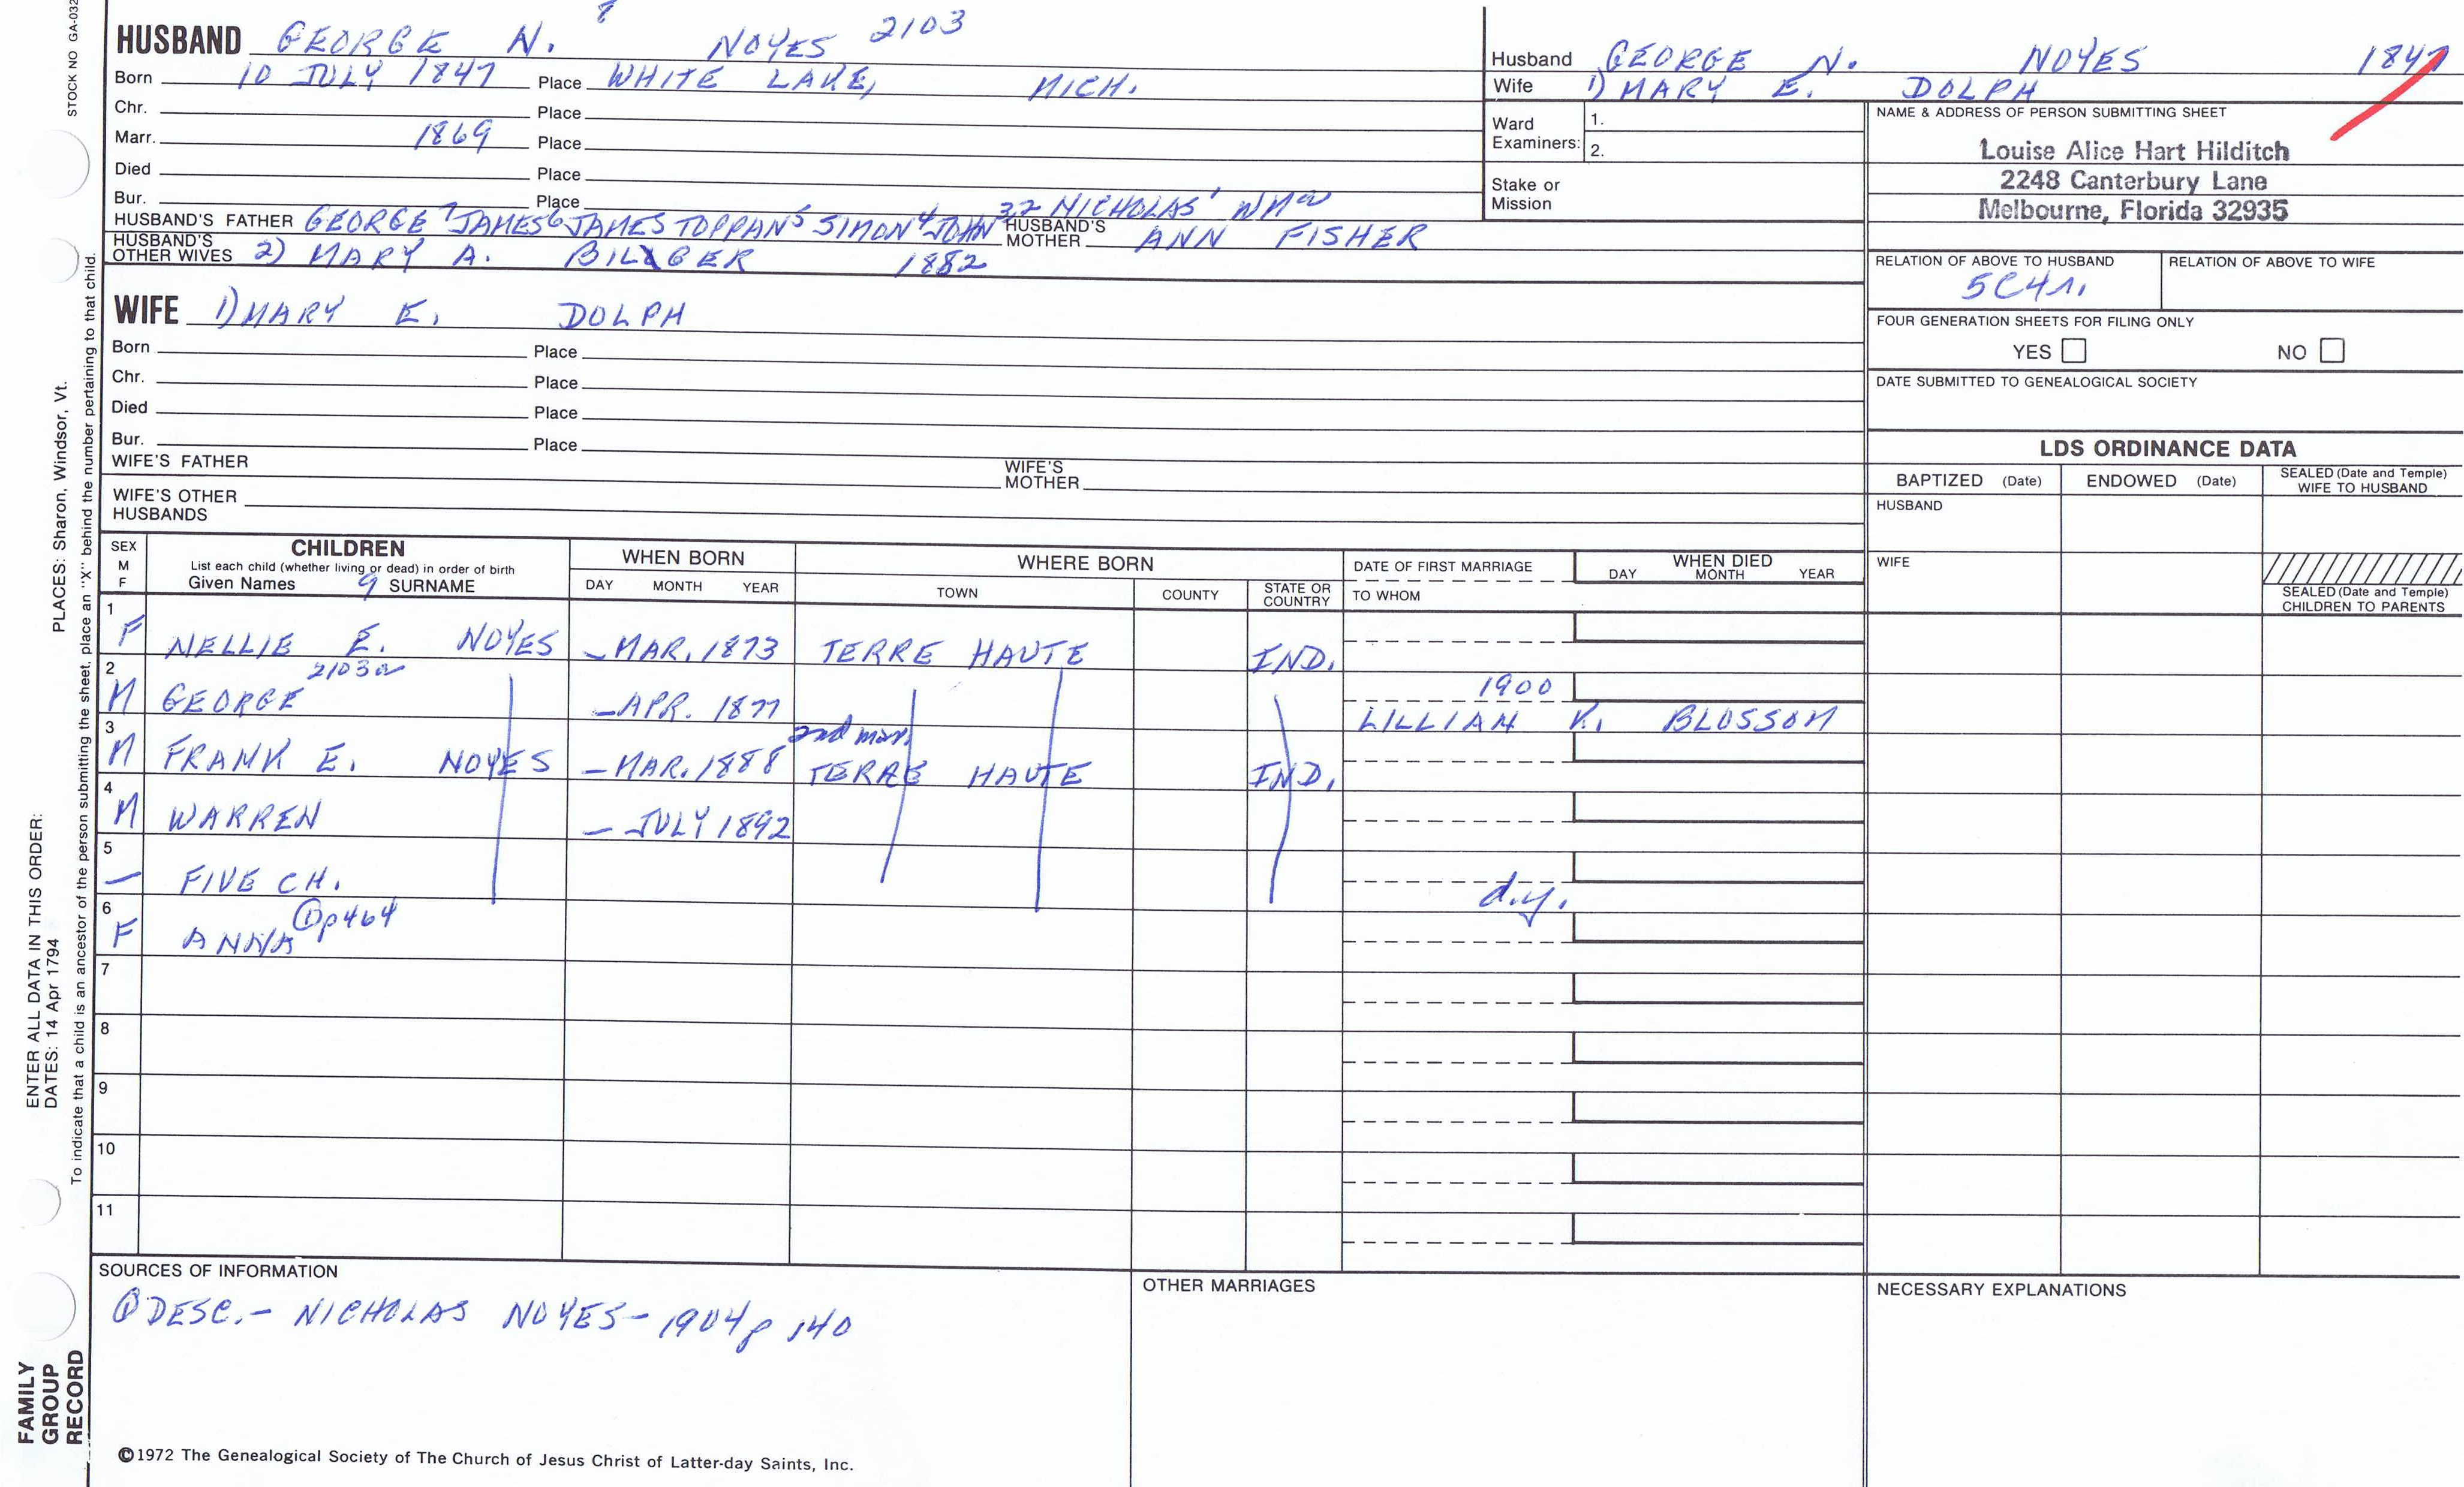 STOCK NO GA-032
PLACES: Sharon, Windsor, Vt.
ENTER ALL DATA IN THIS ORDER:
DATES: 14 Apr 1794
To indicate that a child is an ancestor of the person submitting the sheet, place an "X" behind the number pertaining to that child.
FAMILY
GROUP
RECORD
HUSBAND GEORGE N. 8 NOYES 2103
Born 10 JULY 1847 Place WHITE LAKE, MICH.
Chr. Place
Marr. 1869 Place
Died Place
Bur. Place
HUSBAND'S FATHER GEORGE 7 JAMES 6 JAMES TOPPAN 5 SIMON 4 JOHN 3 2 NICHOLAS 1 WM
HUSBAND'S MOTHER ANN FISHER
HUSBAND'S OTHER WIVES 2) MARY A. BILGER 1882
WIFE 1) MARY E. DOLPH
Born Place
Chr. Place
Died Place
Bur. Place
WIFE'S FATHER WIFE'S MOTHER
WIFE'S OTHER HUSBANDS
Husband GEORGE N. NOYES 1847
Wife 1) MARY E. DOLPH
Ward Examiners: 1.
2.
Stake or Mission
NAME & ADDRESS OF PERSON SUBMITTING SHEET
Louise Alice Hart Hilditch
2248 Canterbury Lane
Melbourne, Florida 32935
RELATION OF ABOVE TO HUSBAND RELATION OF ABOVE TO WIFE
5C4r.
FOUR GENERATION SHEETS FOR FILING ONLY
YES NO
DATE SUBMITTED TO GENEALOGICAL SOCIETY
LDS ORDINANCE DATA
BAPTIZED (Date) ENDOWED (Date) SEALED (Date and Temple) WIFE TO HUSBAND
HUSBAND
WIFE
SEALED (Date and Temple) CHILDREN TO PARENTS
SEX M F
CHILDREN
List each child (whether living or dead) in order of birth
Given Names 9 SURNAME
WHEN BORN
DAY MONTH YEAR
WHERE BORN
TOWN COUNTY STATE OR COUNTRY
DATE OF FIRST MARRIAGE
TO WHOM
WHEN DIED
DAY MONTH YEAR
1 F NELLIE E. NOYES – MAR. 1873 TERRE HAUTE IND.
2 M GEORGE 2103a – APR. 1877 1900
LILLIAN K. BLOSSOM
2nd mar.
3 M FRANK E. NOYES – MAR. 1888 TERRE HAUTE IND.
4 M WARREN – JULY 1892
5 – FIVE CH. d.y.
6 F ANNA ① p464
7
8
9
10
11
SOURCES OF INFORMATION
① DESC. – NICHOLAS NOYES – 1904 p 140
OTHER MARRIAGES
NECESSARY EXPLANATIONS
©1972 The Genealogical Society of The Church of Jesus Christ of Latter-day Saints, Inc.